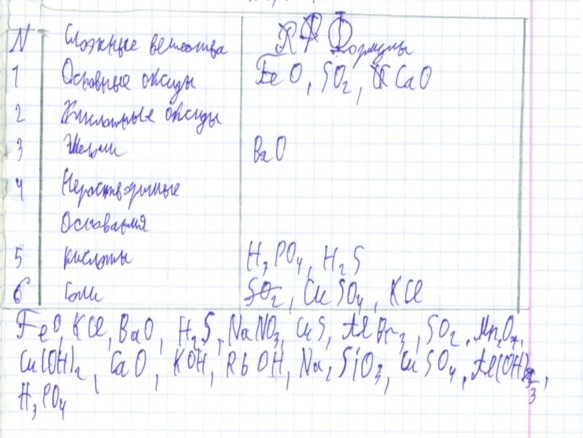 N Сложные вещества Формулы
1 Основные оксиды FeO, SO2, CaO
2 Кислотные оксиды
3 Щелочи BaO
4 Нерастворимые
Основания
5 Кислоты H3PO4, H2S
6 Соли SO2, CuSO4, KCl
FeO, KCl, BaO, H2S, NaNO3, CuS, AlBr3, SO2, Mn2O7,
Cu(OH)2, CaO, KOH, RbOH, Na2SiO3, CuSO4, Al(OH)3,
H3PO4